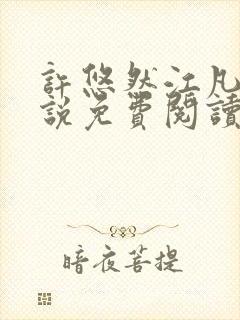 許悠然江凡
說免費閱讀
暗夜菩提